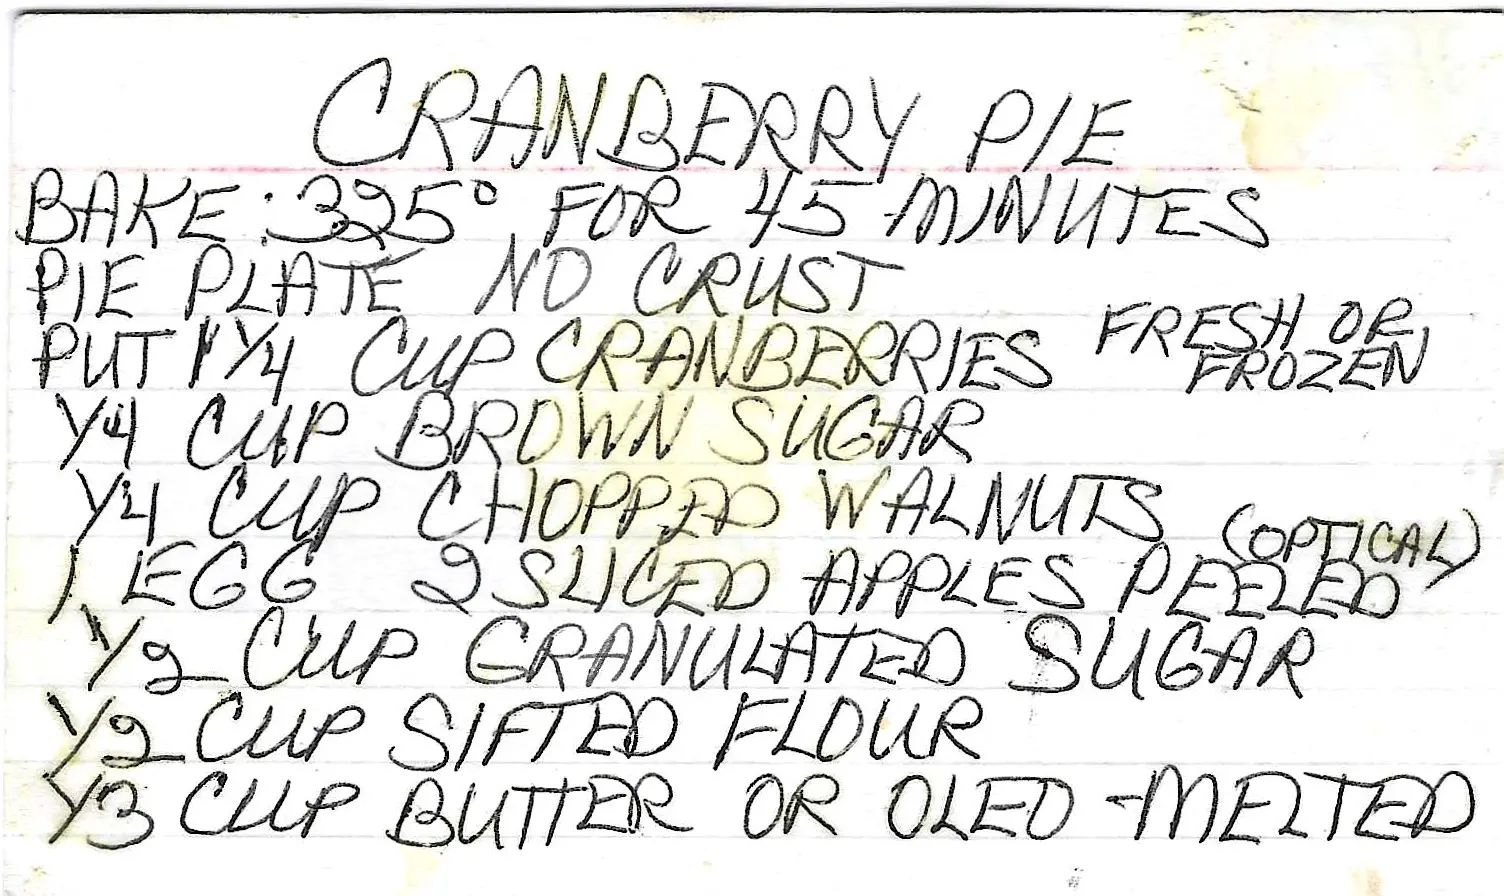 CRANBERRY PIE
BAKE: 325° FOR 45 MINUTES
PIE PLATE NO CRUST
PUT 1 1/4 CUP CRANBERRIES FRESH OR FROZEN
1/4 CUP BROWN SUGAR
1/4 CUP CHOPPED WALNUTS
1 EGG 2 SLICED APPLES PEELED (OPTICAL)
1/2 CUP GRANULATED SUGAR
1/2 CUP SIFTED FLOUR
1/3 CUP BUTTER OR OLEO - MELTED